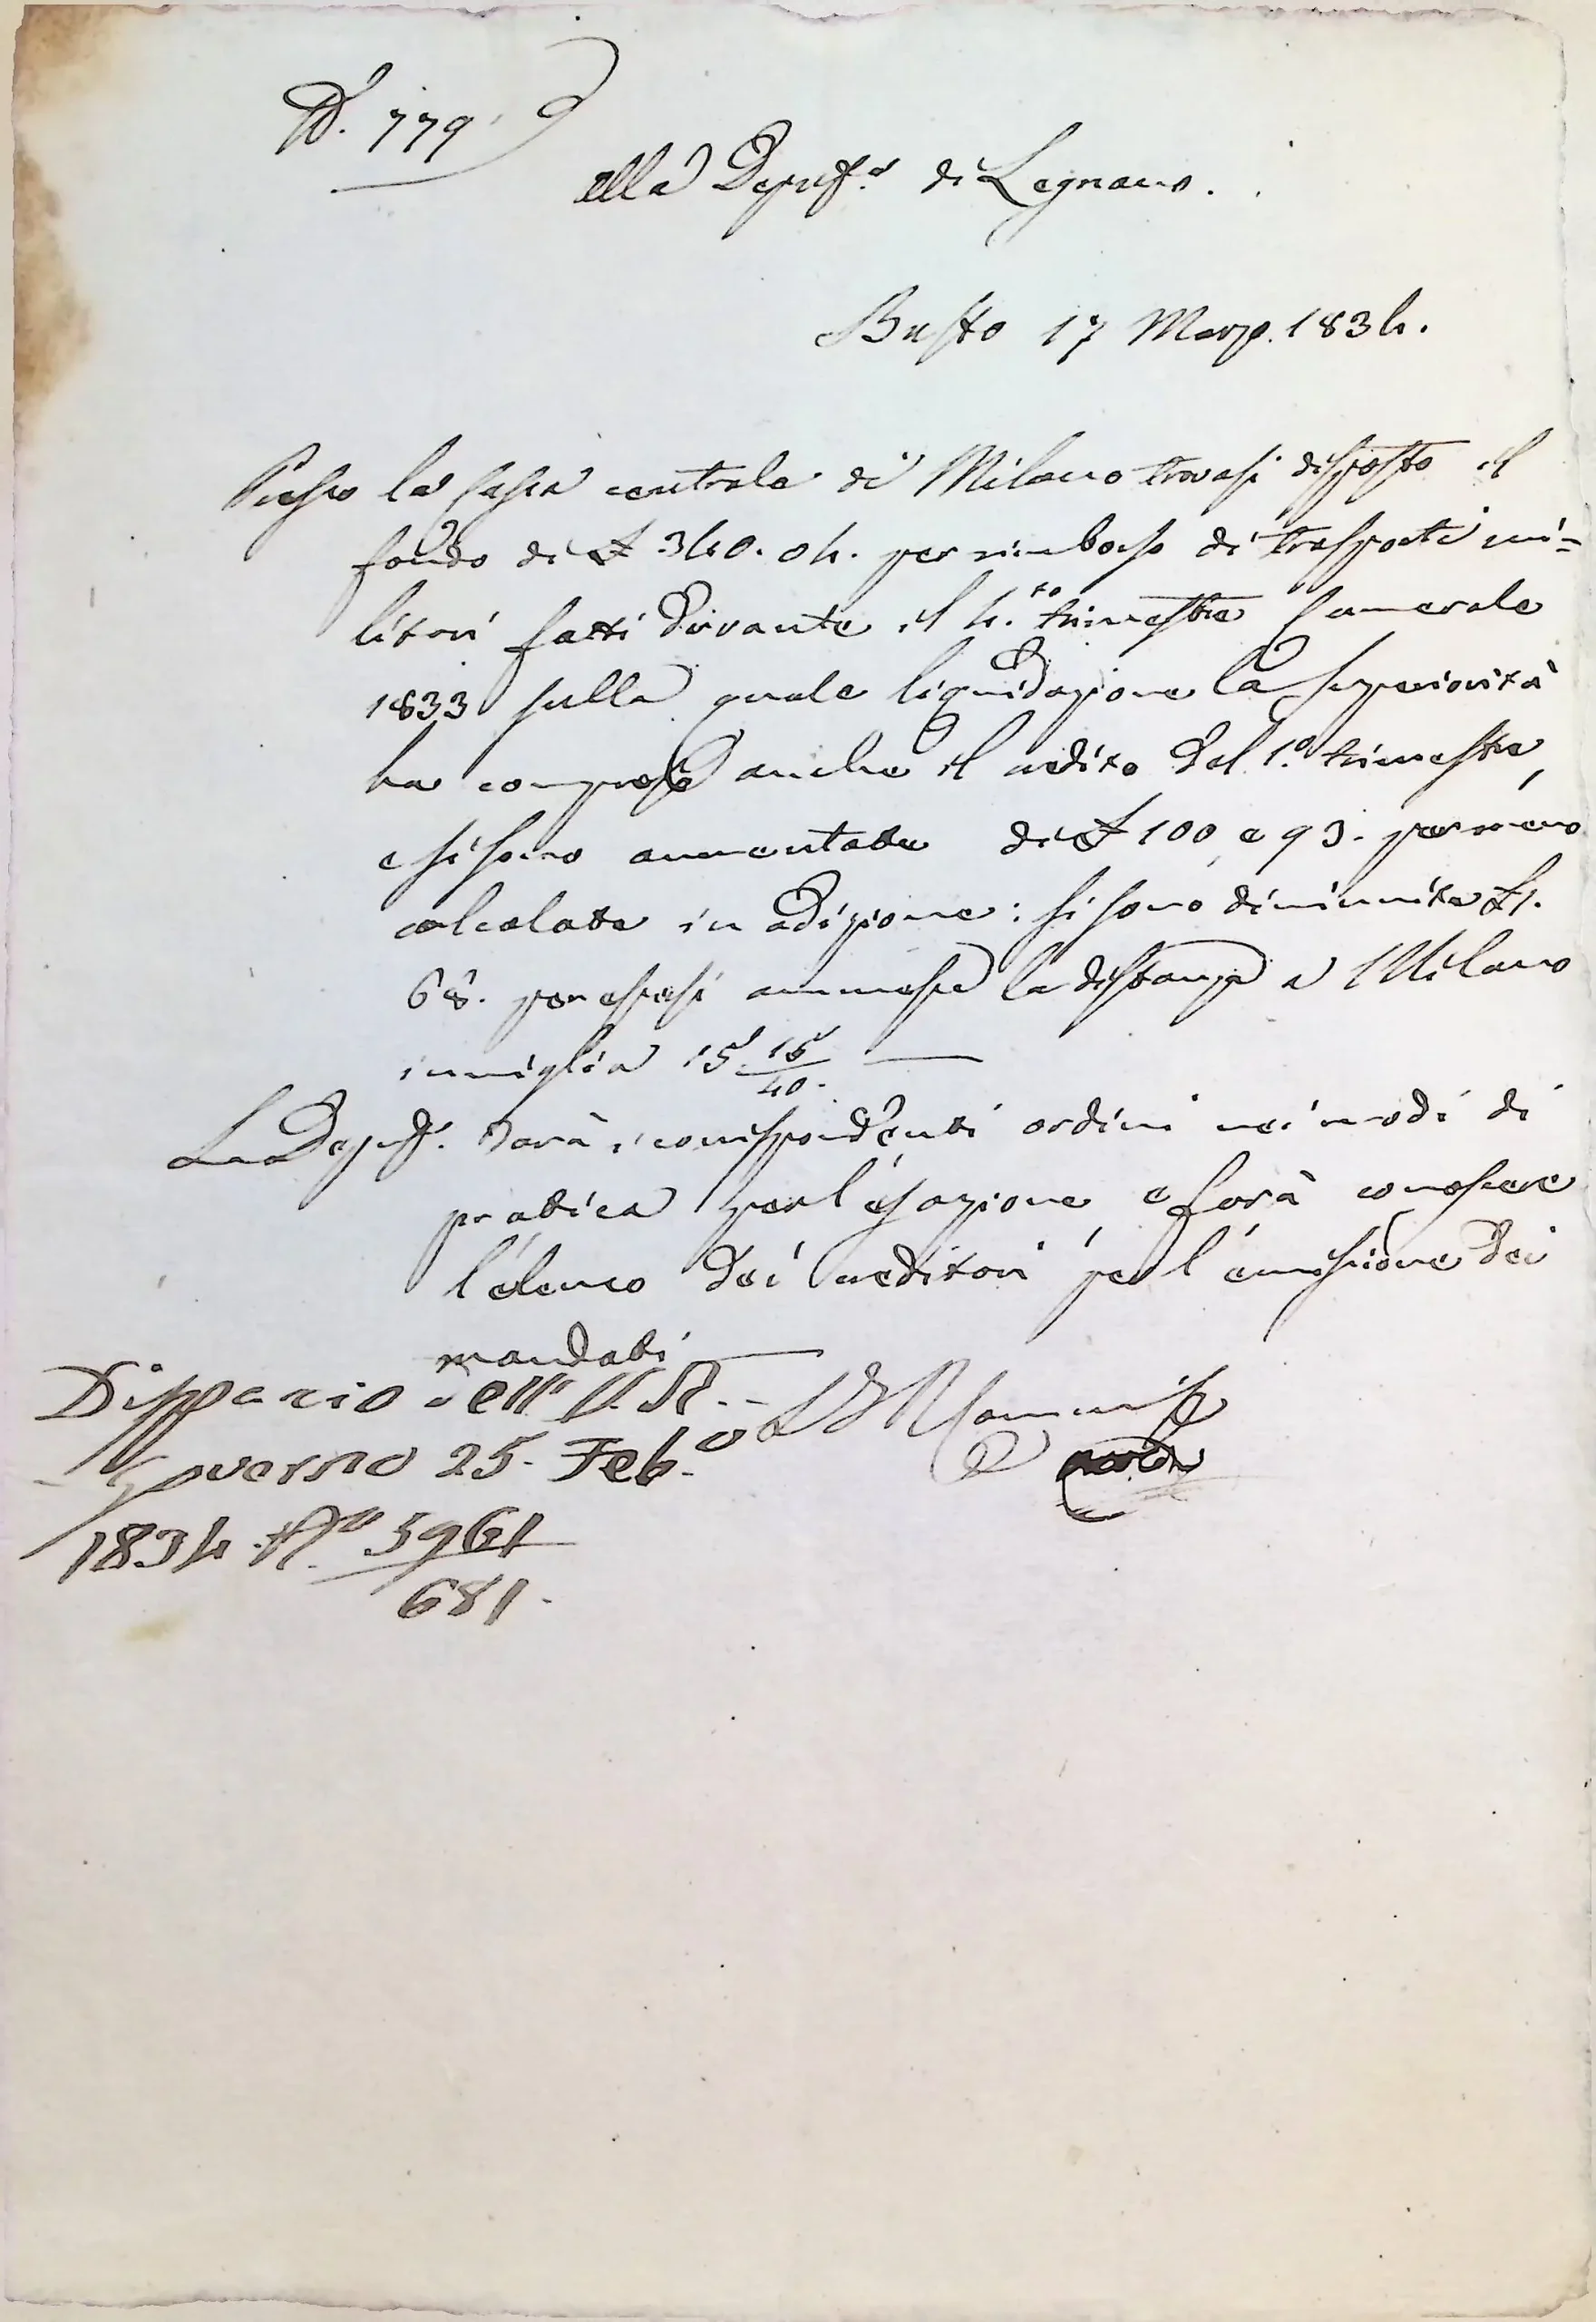 N. 779
Alla Deput.e di Legnano.
Busto 17 Marzo. 1834.
Presso la Cassa centrale di Milano trovasi disposto il
fondo di £ 340. 04. per rimborso di trasporti mi=
litari fatti durante il 4.to trimestre Camerale
1833 sulla quale liquidazione la Superiorità
ha compreso anche il credito del 1.o trimestre,
e si sono aumentate di £ 100, e 93. per meno
calcolate in adizione: si sono diminuite £ 1.
68. per essersi ammessa la distanza a Milano
in miglia 15 15/40. —
La Deput. darà i corrispondenti ordini nei modi di
pratica per l'esazione, e farà conoscere
l'elenco dei creditori per l'emissione dei
mandati —
Dispaccio dell' I. R.
Governo 25. Feb.o
1834 N.o 5961/681.
Il R Commiss